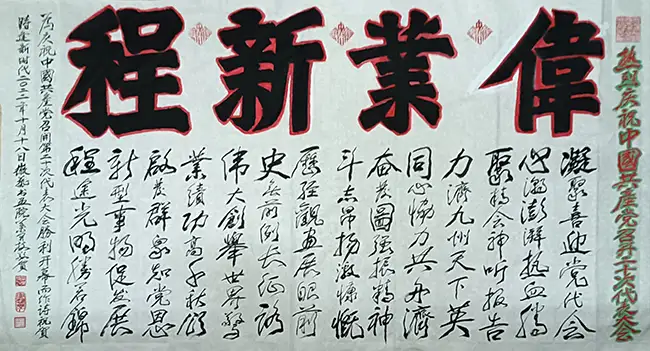 偉業新程
热烈庆祝中國共産党召开二十次代表大会
凝聚喜迎党代会
心潮澎湃热血腾
聚精会神听报告
力济九州天下英
同心協力共舟濟
奋发图强振精神
斗志昂扬激慷慨
歷經觀画展眼前
史无前例长征路
伟大創舉世界驚
業績功高千秋頌
啟发群众知党恩
新型事物促发展
程途光明勝若錦
为庆祝中國共産党召開第二十次代表大会勝利开幕而作诗祝賀
踏進新时代二〇二二年十月十八日